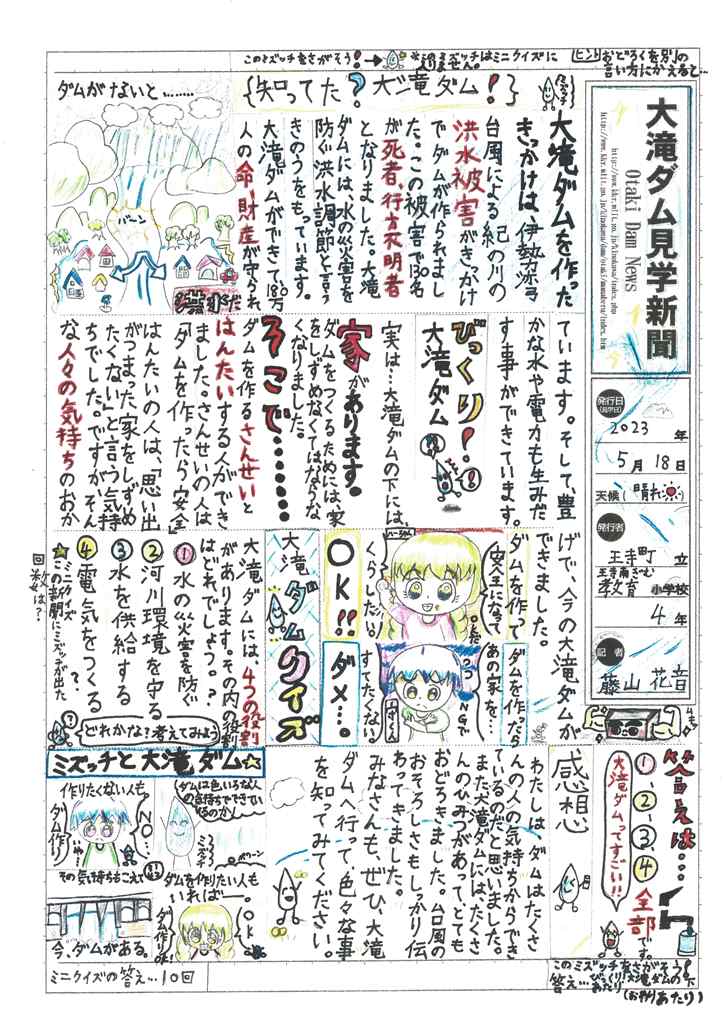 このミズッチをさがそう!→
※このミズッチはミニクイズに
入りません。
ヒント おどろくを別の
言い方にかえると…
大滝ダム見学新聞
Otaki Dam News
発行日
(見学日)
2023年
5月18日
天候(晴れ)
発行者
王寺町 立
王寺南ぎむ
教育 小学校
4年
記者
藤山 花音
{知ってた?大滝ダム!}
ミズッチ
大滝ダムを作った
きっかけは、伊勢湾
台風による紀の川の
洪水被害がきっかけ
でダムが作られまし
た。この被害で130名
が死者、行方不明者
となりました。大滝
ダムには、水の災害を
防ぐ洪水調節と言う
きのうをもっています。
大滝ダムができて18万
人の命、財産が守られ
ダムがないと……
バーン
ています。そして、豊
かな水や電力も生みだ
す事ができています。
びっくり!
大滝ダム
実は…大滝ダムの下には、
家があります。
ダムをつくるためには、家
をしずめなくてはならな
くなりました。
そこで……
ダムを作るさんせいと
はんたいする人ができ
ました。さんせいの人は
「ダムを作ったら安全」
はんたいの人は、「思い出
がつまった家をしずめ
たくない」と言う気持
ちでした。ですがそん
な人々の気持ちのおか
げで、今の大滝ダムが
できました。
ダムを作って
安全になって
くらしたい。
OK!!
ダムを作ったら
あの家を…
すてたくない。
ダメ…。
大滝ダムクイズ
大滝ダムには、4つの役割
があります。その内の役割
はどれでしょう。?
① 水の災害を防ぐ
② 河川環境を守る
③ 水を供給する
④ 電気をつくる
どれかな?考えてみよう
★ミニクイズ
この新聞にミズッチが出た
回数は?
答えは…
①、②、③、④
全部です。
大滝ダムってすごい!!
感想
わたしは、ダムはたくさ
んの人の気持ちからでき
ているのだと思いました。
また大滝ダムには、たくさ
んのひみつがあって、とても
おどろきました。台風の
おそろしさもしっかり伝
わってきました。
みなさんも、ぜひ、大滝
ダムへ行って色々な事
を知ってみてください。
ミズッチと大滝ダム☆
ダムは色々な人
の気持ちでできてい
るのか
ミズッチ
作りたくない人も
NO…
ダム作り
ダムを作りたい人も
いれば―
OK
ダム作り
その気持ちをこえて
今、ダムがある。
ミニクイズの答え…10回
このミズッチをさがそう!
答え…びっくり!大滝ダムの下
あたり